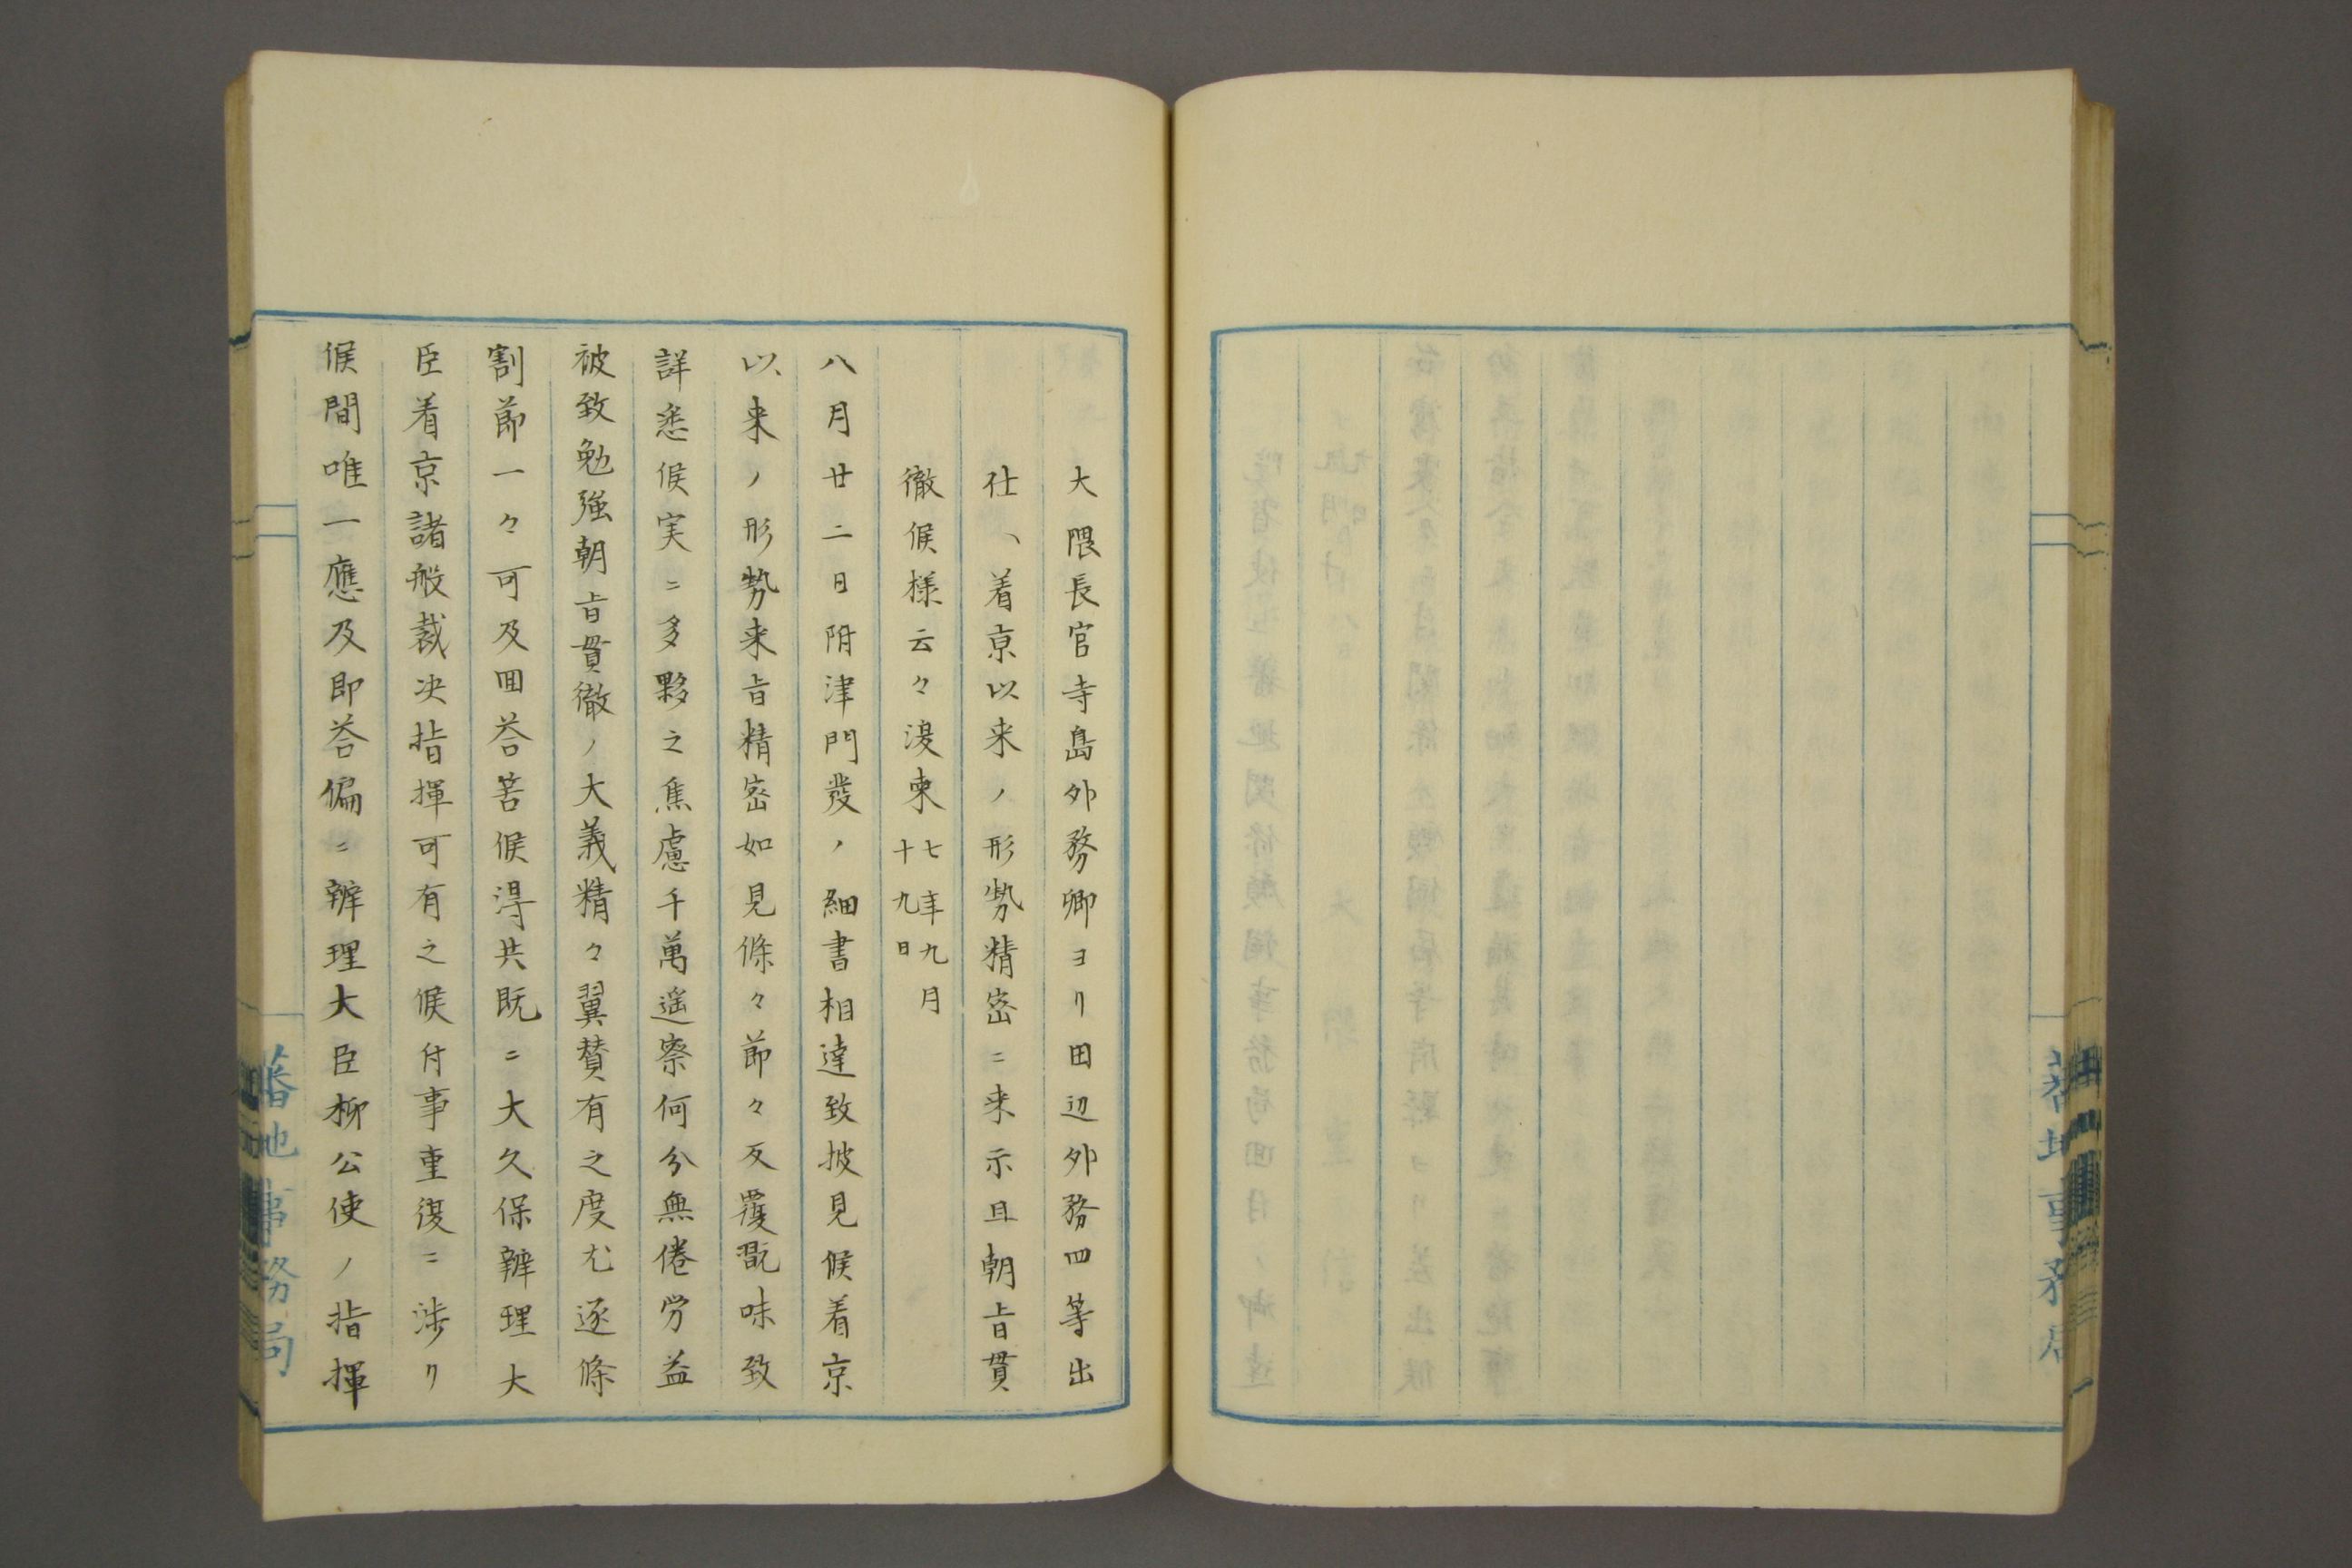 大隈長官寺島外務卿ヨリ田辺外務四等出
仕ヘ着京以来ノ形勢精密ニ来示且朝旨貫
徹候様云々復柬七年九月十九日
八月廿二日附津門發ノ細書相達致披見候着京
以来ノ形勢来旨精密如見條々節々反覆翫味致
詳悉候実ニ多夥之焦慮千萬遥察何分無倦労益
被致勉強朝旨貫徹ノ大義精々翼賛有之度尤逐條
割節一々可及回荅筈候得共既ニ大久保辨理大
臣着京諸般裁决指揮可有之候付事重復ニ渉リ
候間唯一應及即荅偏ニ辨理大臣柳公使ノ指揮
蕃地事務局
蕃地事務局